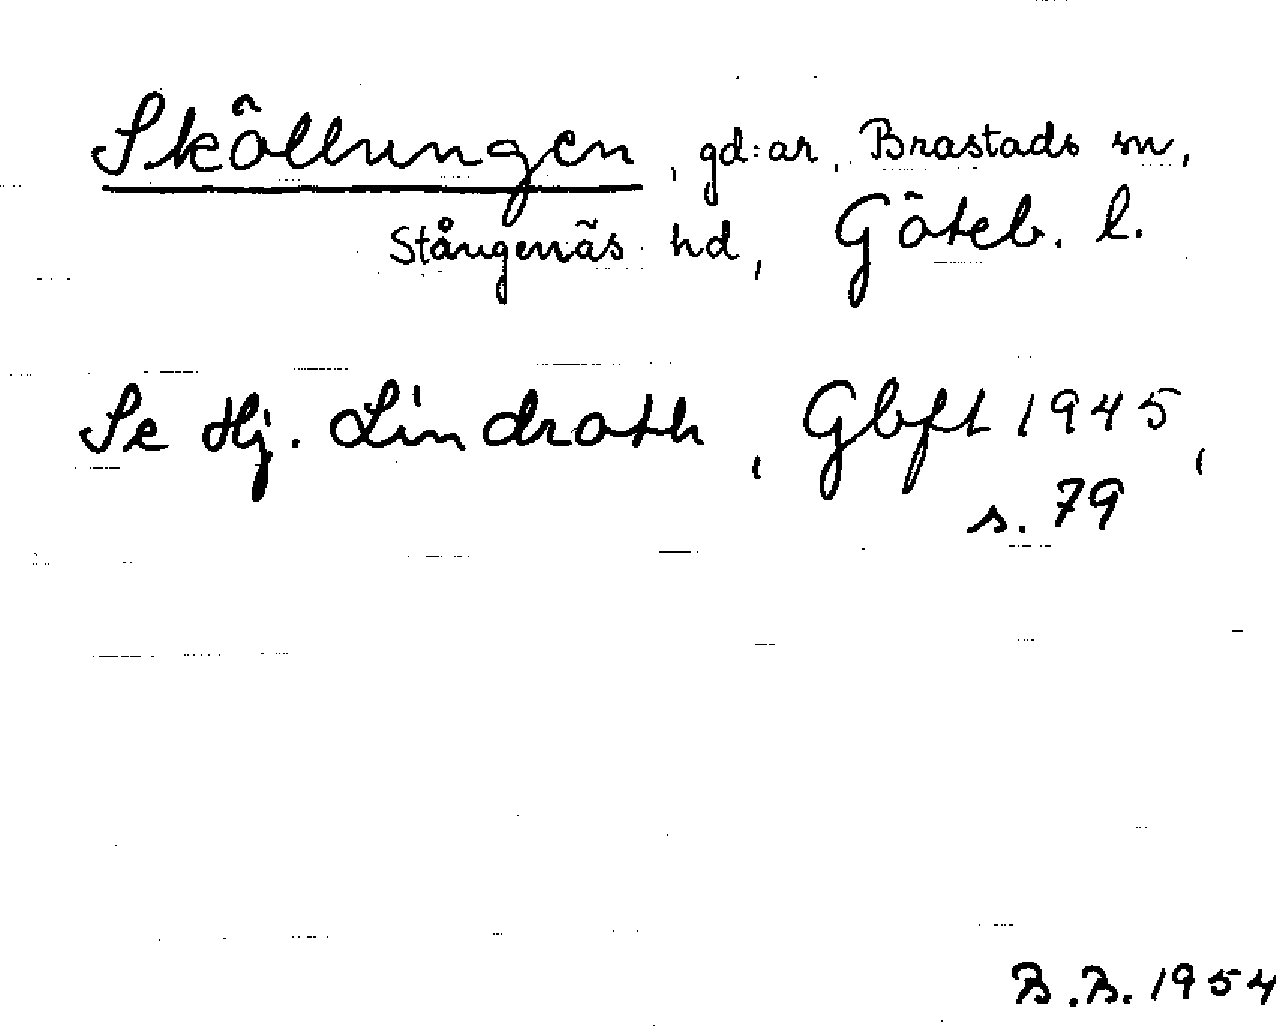 Sköllungen, gd:ar, Brastads sn,
Stångenäs hd, Göteb. l.
Se Hj. Lindroth, Gbft 1945,
s. 79
B.B. 1954